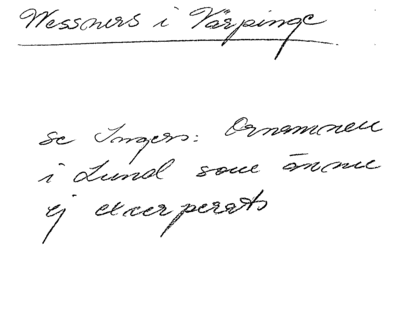 Wessners i Värpinge
se Ingers: Ornamnen
i Lund som ännu
ej excerperats